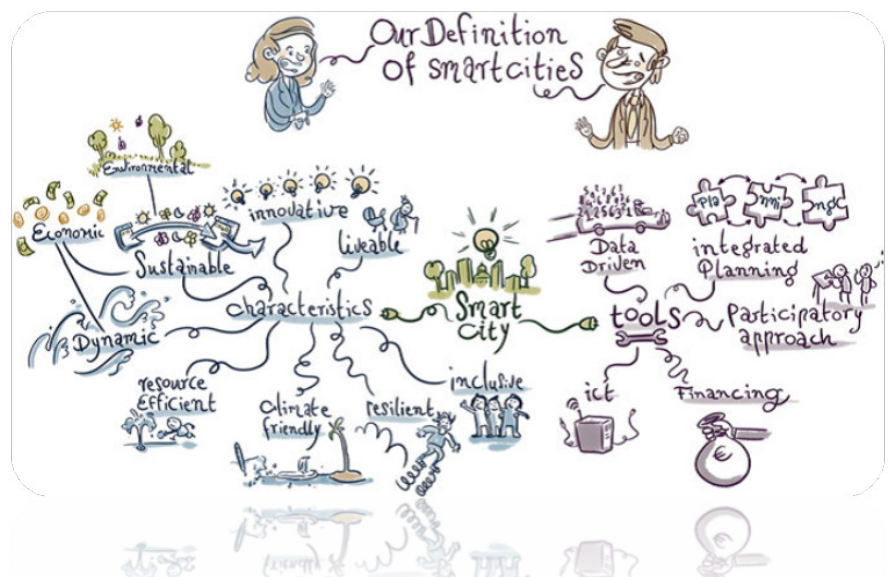 Our Definition
of smartcities
Environmental
Economic
Sustainable
Dynamic
innovative
Liveable
characteristics
resource
Efficient
Climate
friendly
resilient
inclusive
Smart
City
Data
Driven
Pla
nni
ngG
integrated
Planning
tools
Participatory
approach
ict
Financing
€